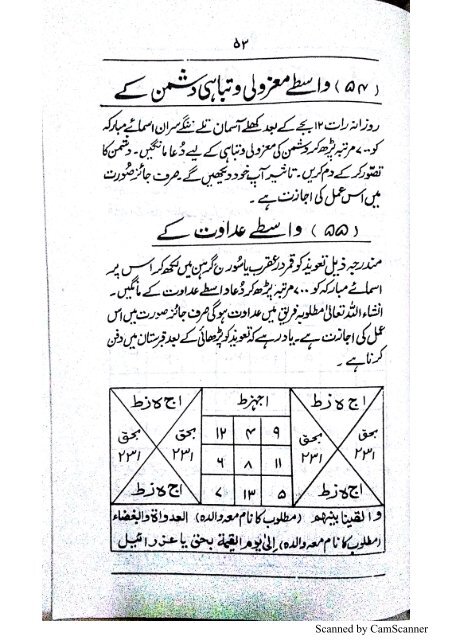 ۵۳
(۵۴) واسطے معزولی و تباہی دشمن کے
روزانہ رات ۱۲ بجے کے بعد کھلے آسمان تلے ننگے سر ان اسمائے مبارکہ
کو ۷۰۰ مرتبہ پڑھ کر دشمن کی معزولی و تباہی کے لیے دُعا مانگیں۔ دشمن کا
تصوّر کر کے دم کریں۔ تاخیر آپ خود دیکھیں گے۔ صرف جائز صُورت
میں اس عمل کی اجازت ہے۔
(۵۵) واسطے عداوت کے
مندرجہ ذیل تعویذ کو قمر در عقرب یا سُورج گرہن میں لکھ کر اس پر
اسمائے مبارکہ کو ۷۰۰ مرتبہ پڑھ کر دُعا واسطے عداوت کے مانگیں۔
انشاء اللہ تعالیٰ مطلوبہ فریق میں عداوت ہو گی صرف جائز صورت میں اس
عمل کی اجازت ہے۔ یاد رہے کہ تعویذ کو پڑھائی کے بعد قبرستان میں دفن
کرنا ہے۔
اج ہ ز ط اجہزط اج ہ ز ط
۹ ۴ ۱۲
بحق ۲۳۱ بحق ۲۳۱ بحق ۲۳۱ بحق ۲۳۱
۱۱ ۸ ۶
۵ ۱۳ ۷
اج ہ ز ط اج ہ ز ط
والقینا بینھم (مطلوب کا نام معہ والدہ) العدواۃ والبغضاء
(مطلوب کا نام معہ والدہ) الیٰ یوم القیٰمة بحق یا عزرائیل
Scanned by CamScanner